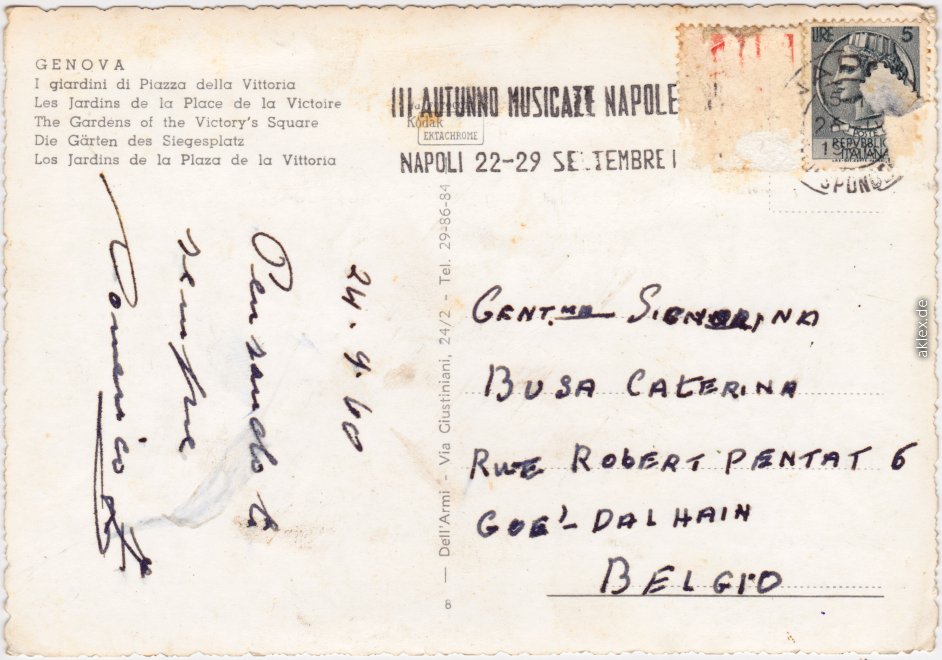 GENOVA
I giardini di Piazza della Vittoria
Les Jardins de la Place de la Victoire
The Gardens of the Victory's Square
Die Gärten des Siegesplatz
Los Jardins de la Plaza de la Vittoria
III AUTUNNO MUSICALE NAPOLE
Kodak
EKTACHROME
NAPOLI 22-29 SETTEMBRE
LIRE 5
POSTE
REPVBBLIC
ITALIAN
24.9.60
Pensando ti
sempre
Domenico
8 — Dell'Armi - Via Giustiniani, 24/2 - Tel. 29-86-84
GENT.MA SIGNORINA
BUSA CATERINA
RUE ROBERT PENTAT 6
DALHAIN
BELGIO
aklex.de